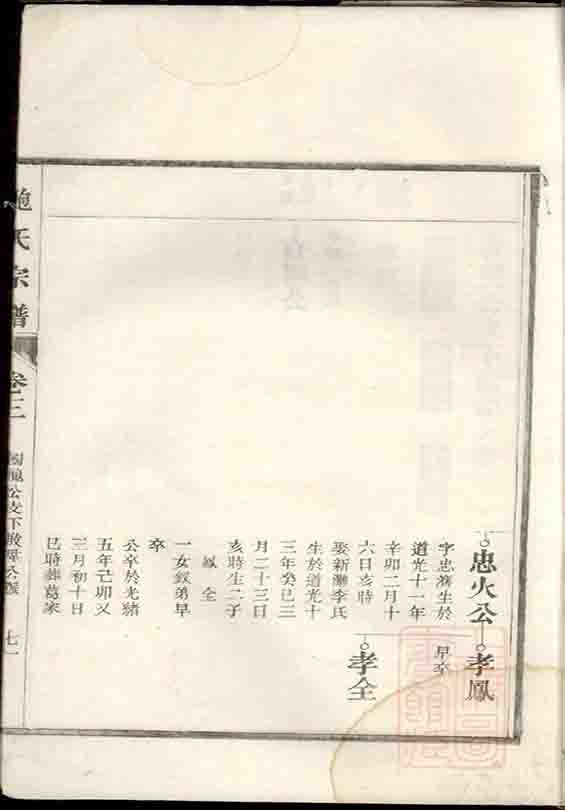 忠火公
孝鳳
早卒
字忠濟生於
道光十一年
辛卯二月十
六日亥時
娶新灘李氏
生於道光十
三年癸巳三
月二十三日
亥時生二子
鳳 全
一女釵弟早
卒
公卒於光緒
五年己卯又
三月初十日
巳時葬葛家
孝全
鮑氏宗譜
卷二
公支下
七一